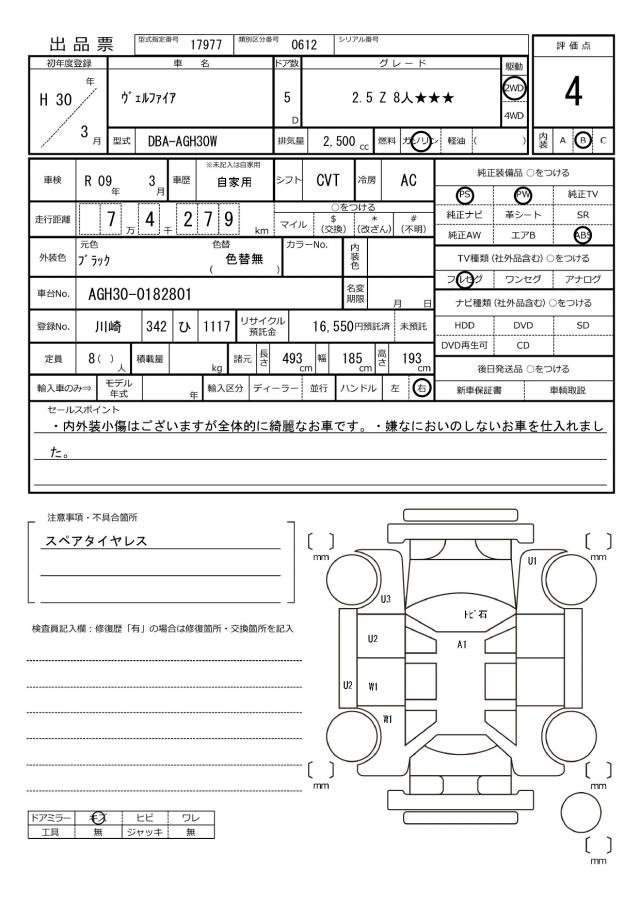 出品票 型式指定番号 17977 類別区分番号 0612 シリアル番号
初年度登録 車 名 ドア数 グレード 駆動 評価点
H 30 年 3 月 ヴェルファイア 5 D 2.5 Z 8人★★★ 2WD 4WD 4
型式 DBA-AGH30W 排気量 2,500 cc 燃料 ガソリン 軽油 ( ) 内装 A B C
車検 R 09 年 3 月 車歴 ※未記入は自家用 自家用 シフト CVT 冷房 AC
走行距離 7 万 4 千 279 km ○をつける マイル $ (交換) * (改ざん) # (不明)
外装色 元色 ブラック 色替 色替無 ( ) カラーNo. 内装色
車台No. AGH30-0182801 名変期限 月 日
登録No. 川崎 342 ひ 1117 リサイクル預託金 16,550円預託済 未預託
定員 8( ) 人 積載量 kg 諸元 長さ 493 cm 幅 185 cm 高さ 193 cm
輸入車のみ⇒ モデル年式 年 輸入区分 ディーラー 並行 ハンドル 左 右
純正装備品 ○をつける
PS PW 純正TV
純正ナビ 革シート SR
純正AW エアB ABS
TV種類 (社外品含む) ○をつける
フルセグ ワンセグ アナログ
ナビ種類 (社外品含む) ○をつける
HDD DVD SD
DVD再生可 CD
後日発送品 ○をつける
新車保証書 車輌取説
セールスポイント
・内外装小傷はございますが全体的に綺麗なお車です。・嫌なにおいのしないお車を仕入れまし
た。
注意事項・不具合箇所
スペアタイヤレス
検査員記入欄：修復歴「有」の場合は修復箇所・交換箇所を記入
〔 〕 mm 〔 〕 mm
U1
U3
トビ石
U2 A1
U2 W1
W1
〔 〕 mm 〔 〕 mm
〔 〕 mm
ドアミラー キズ ヒビ ワレ
工具 無 ジャッキ 無